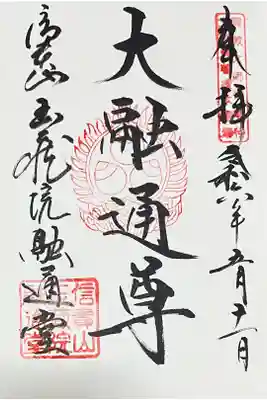 奉拝 令和 年五月十一日
大融通尊
信貴山 玉蔵院融通堂
信貴山